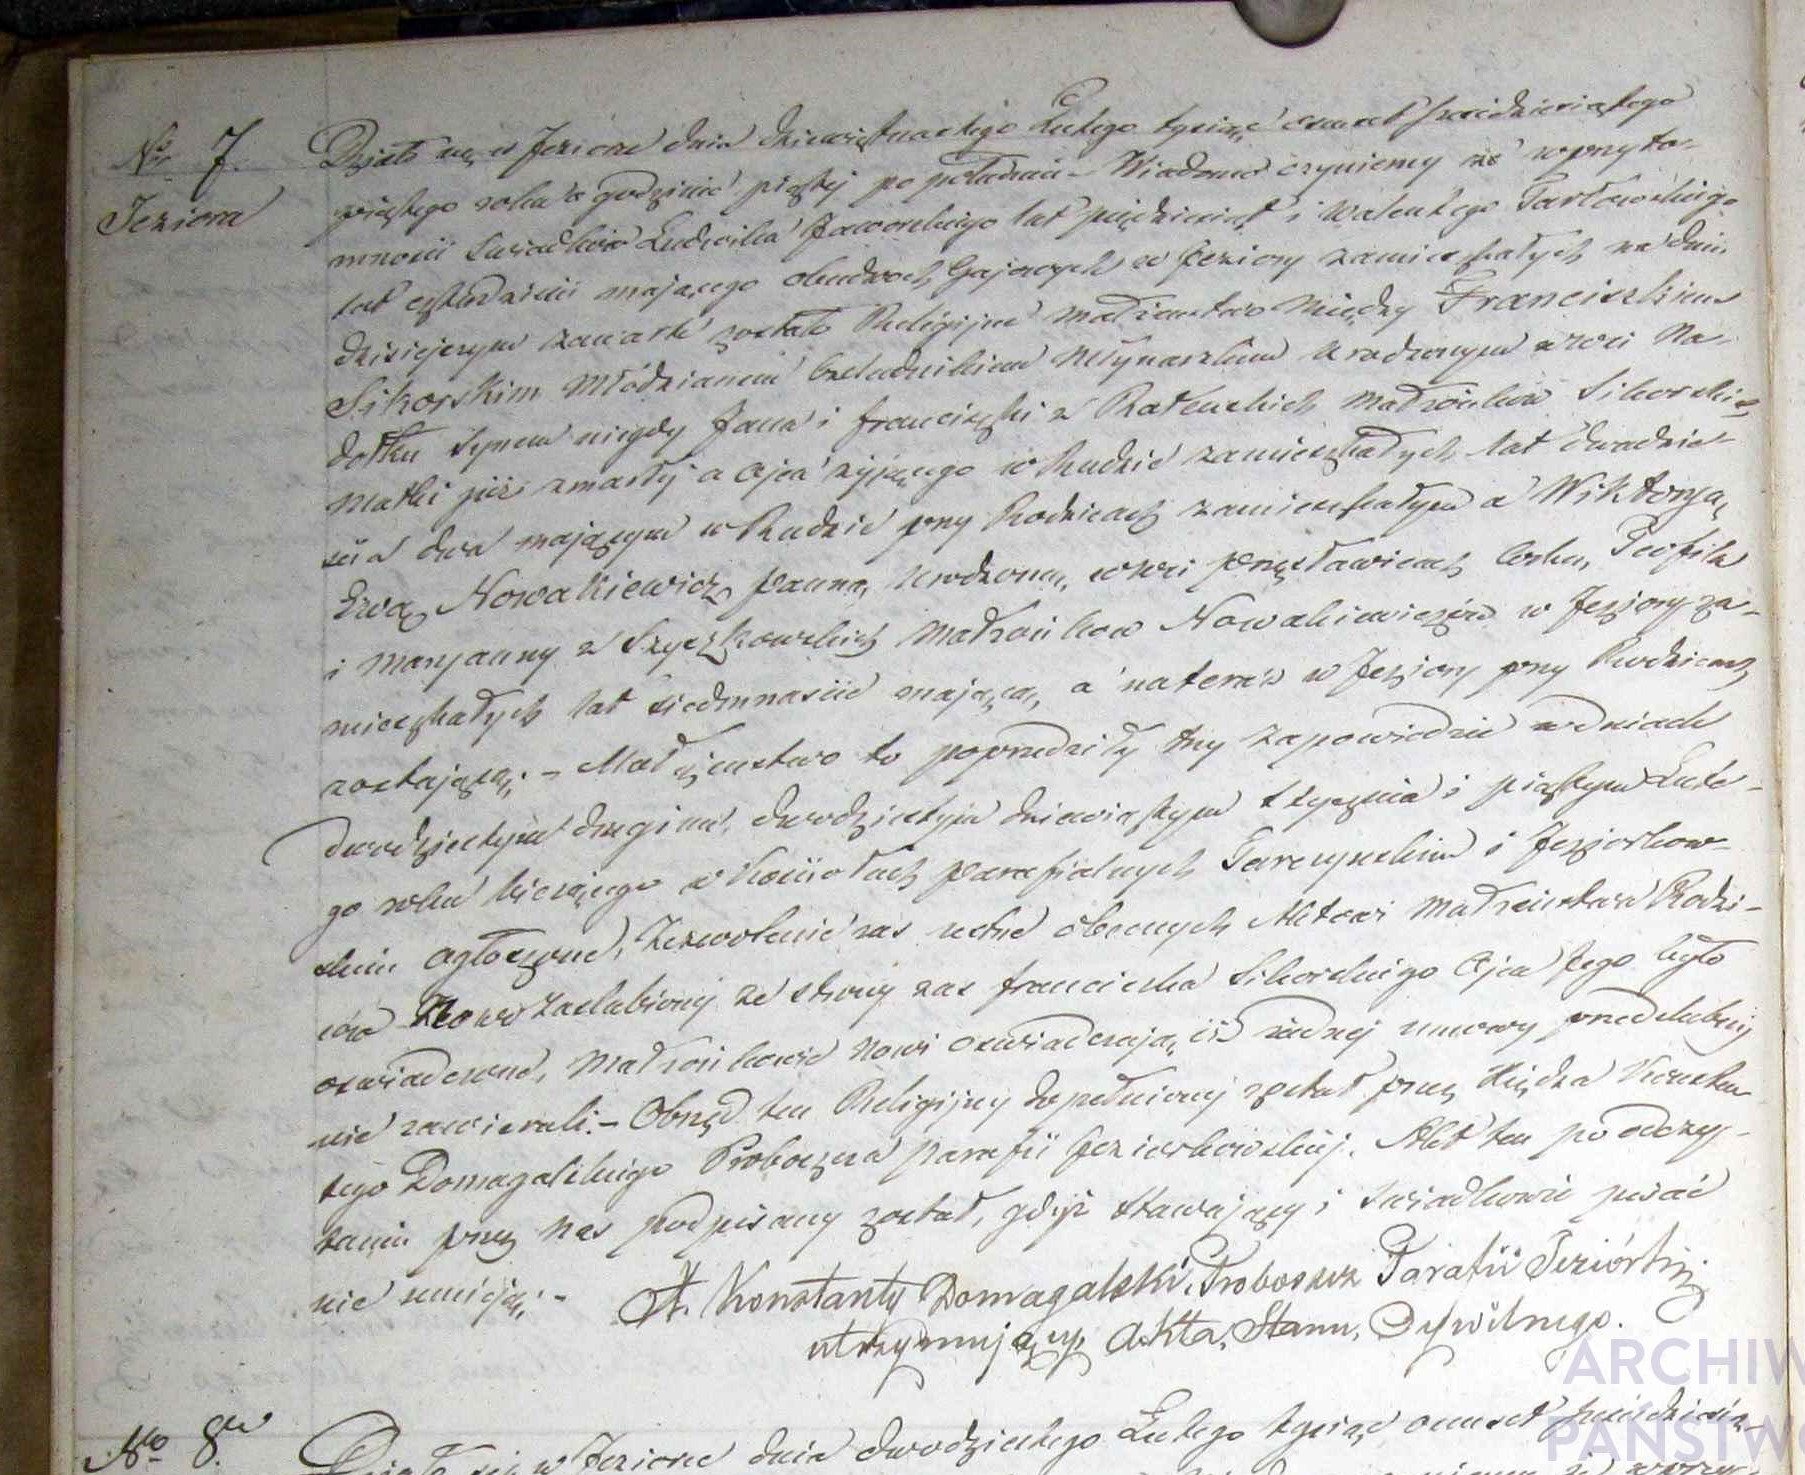 No 7. Działo się w Jeziorze dnia dziewiętnastego Lutego tysiąc osmset sześćdziesiątego
Jeziora
piątego roku o godzinie piątej po południu – Wiadomo czyniemy że w przyto-
mności Swiadków Ludwika Jaworskiego lat pięćdziesiąt i Walentego Tarłowskiego
lat czterdzieści mającego obudwoch Gajowych w Jeziory zamieszkałych na dniu
dzisiejszym zawarte zostało Religijne małżeństwo między Franciszkiem
Sikorskim Młodzianem czeladnikiem Młynarskim urodzonym w wsi Na-
dołku Synem niegdy Jana i Franciszki z małżonków Sikorskich
Matki już zmarłej a Ojca żyjącego w Rudzie zamieszkałych lat dwadzie-
ścia dwa mającym w Rudzie przy Rodzicach zamieszkałym a Wiktorją
Ewą Nowakiewicz Panną, urodzoną w wsi Przęsławicach Corką Teofila
i Maryanny z Szyszkowskich Małżonkow Nowakiewiczów w Jeziory za-
mieszkałych lat siedmnaście mającą, a na teraz w Jeziory przy Rodzicach
zostającą. – Małżeństwo to poprzedziły trzy zapowiedzie w dniach
dwudziestym drugim, dwudziestym dziewiątym Stycznia i piątym Lute-
go roku bieżącego w Kościołach parafialnych Tarczynskim i Jeziorkow-
skim ogłoszone, Zezwolenie zas ustne obecnych Aktowi Małżeństwa Rodzi-
ców Nowozaślubionej ze strony zas Franciszka Sikorskiego Ojca Jego było
oswiadczone, Małżonkowie nowi oswiadczają iż żadnej umowy przedślubnej
nie zawierali. – Obrzęd ten Religijny dopełniony został przez Księdza Konstan-
tego Domagalskiego Proboszcza parafii Jeziorkowskiej. Akt ten po odczy-
taniu przez nas podpisany został, gdyż Stawający i Swiadkowie pisać
nie umieją. –
X. Konstanty Domagalski, Proboszcz Parafii Jeziórki
utrzymujący Akta, Stanu, Cywilnego.
No 8. Działo się w Jeziorze dnia dwudziestego Lutego tysiąc osmset sześćdziesią-
ARCHIW
PAŃSTWO